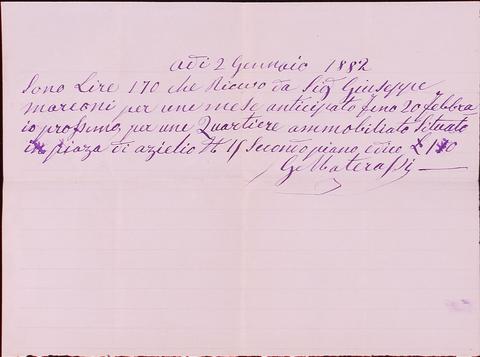 Adi 2 Gennaio 1882
Sono Lire 170 che Ricevo da Sig Giuseppe
Marconi per une mese anticipato fino 20 febbra
io prossimo, per une Quartiere ammobiliato Situato
in piaza di azielio N 15 Secondo piano, dico £ 170
G Materassi